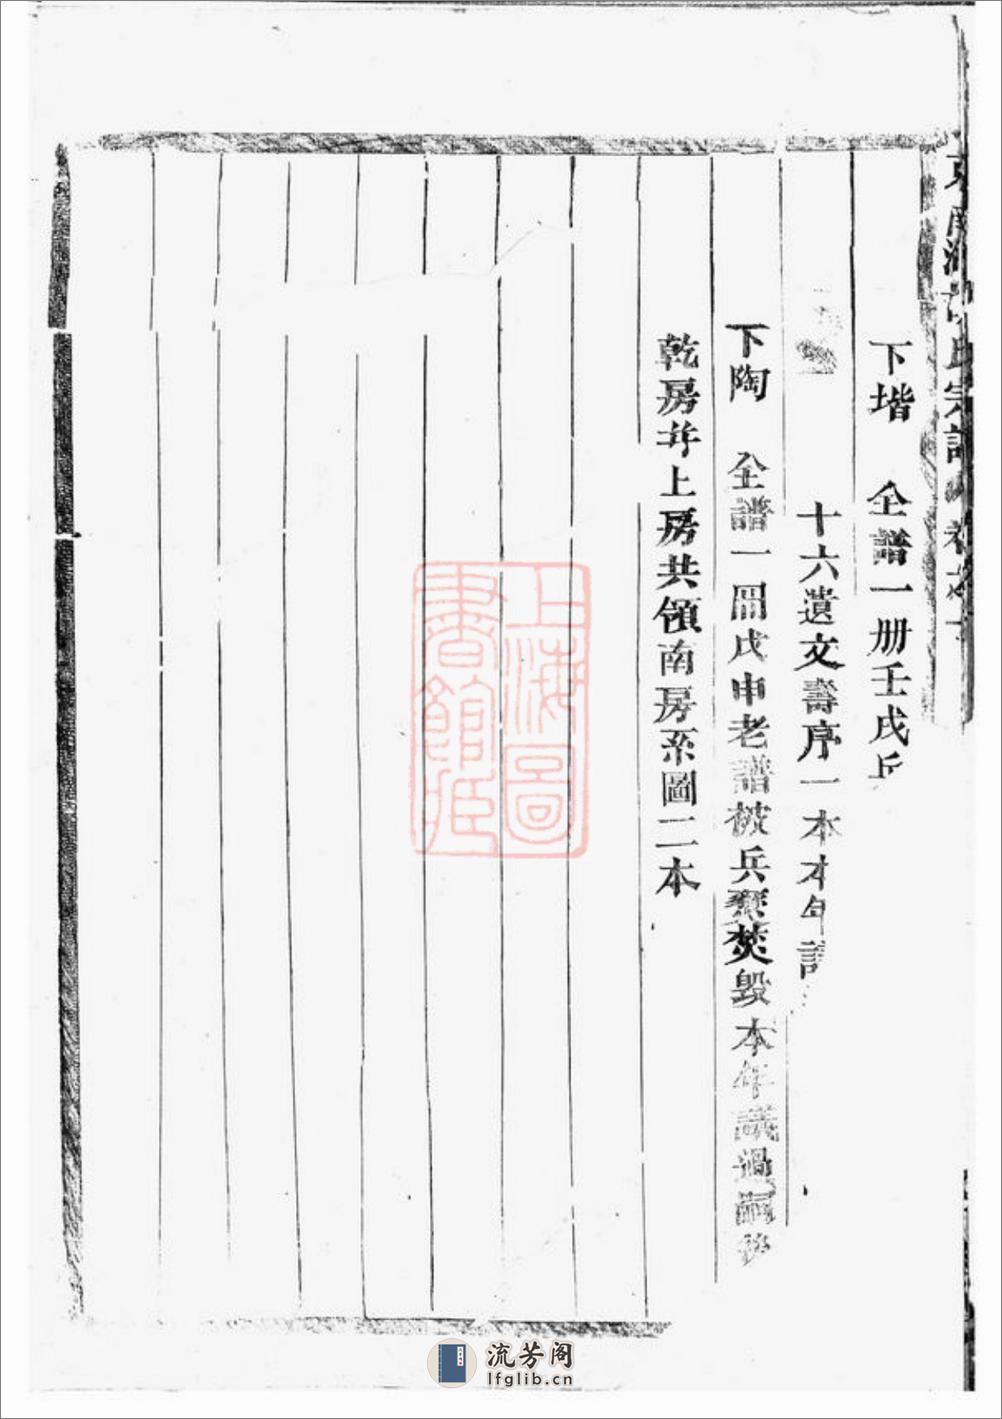 下堦 全譜一册壬戌兵
十六遺文壽序一本本年議
下陶 全譜一冊戊申老譜被兵燹焚毀本年議過嗣後
乾房井上房共領南房系圖二本
上海圖書館藏
流芳阁
lfglib.cn